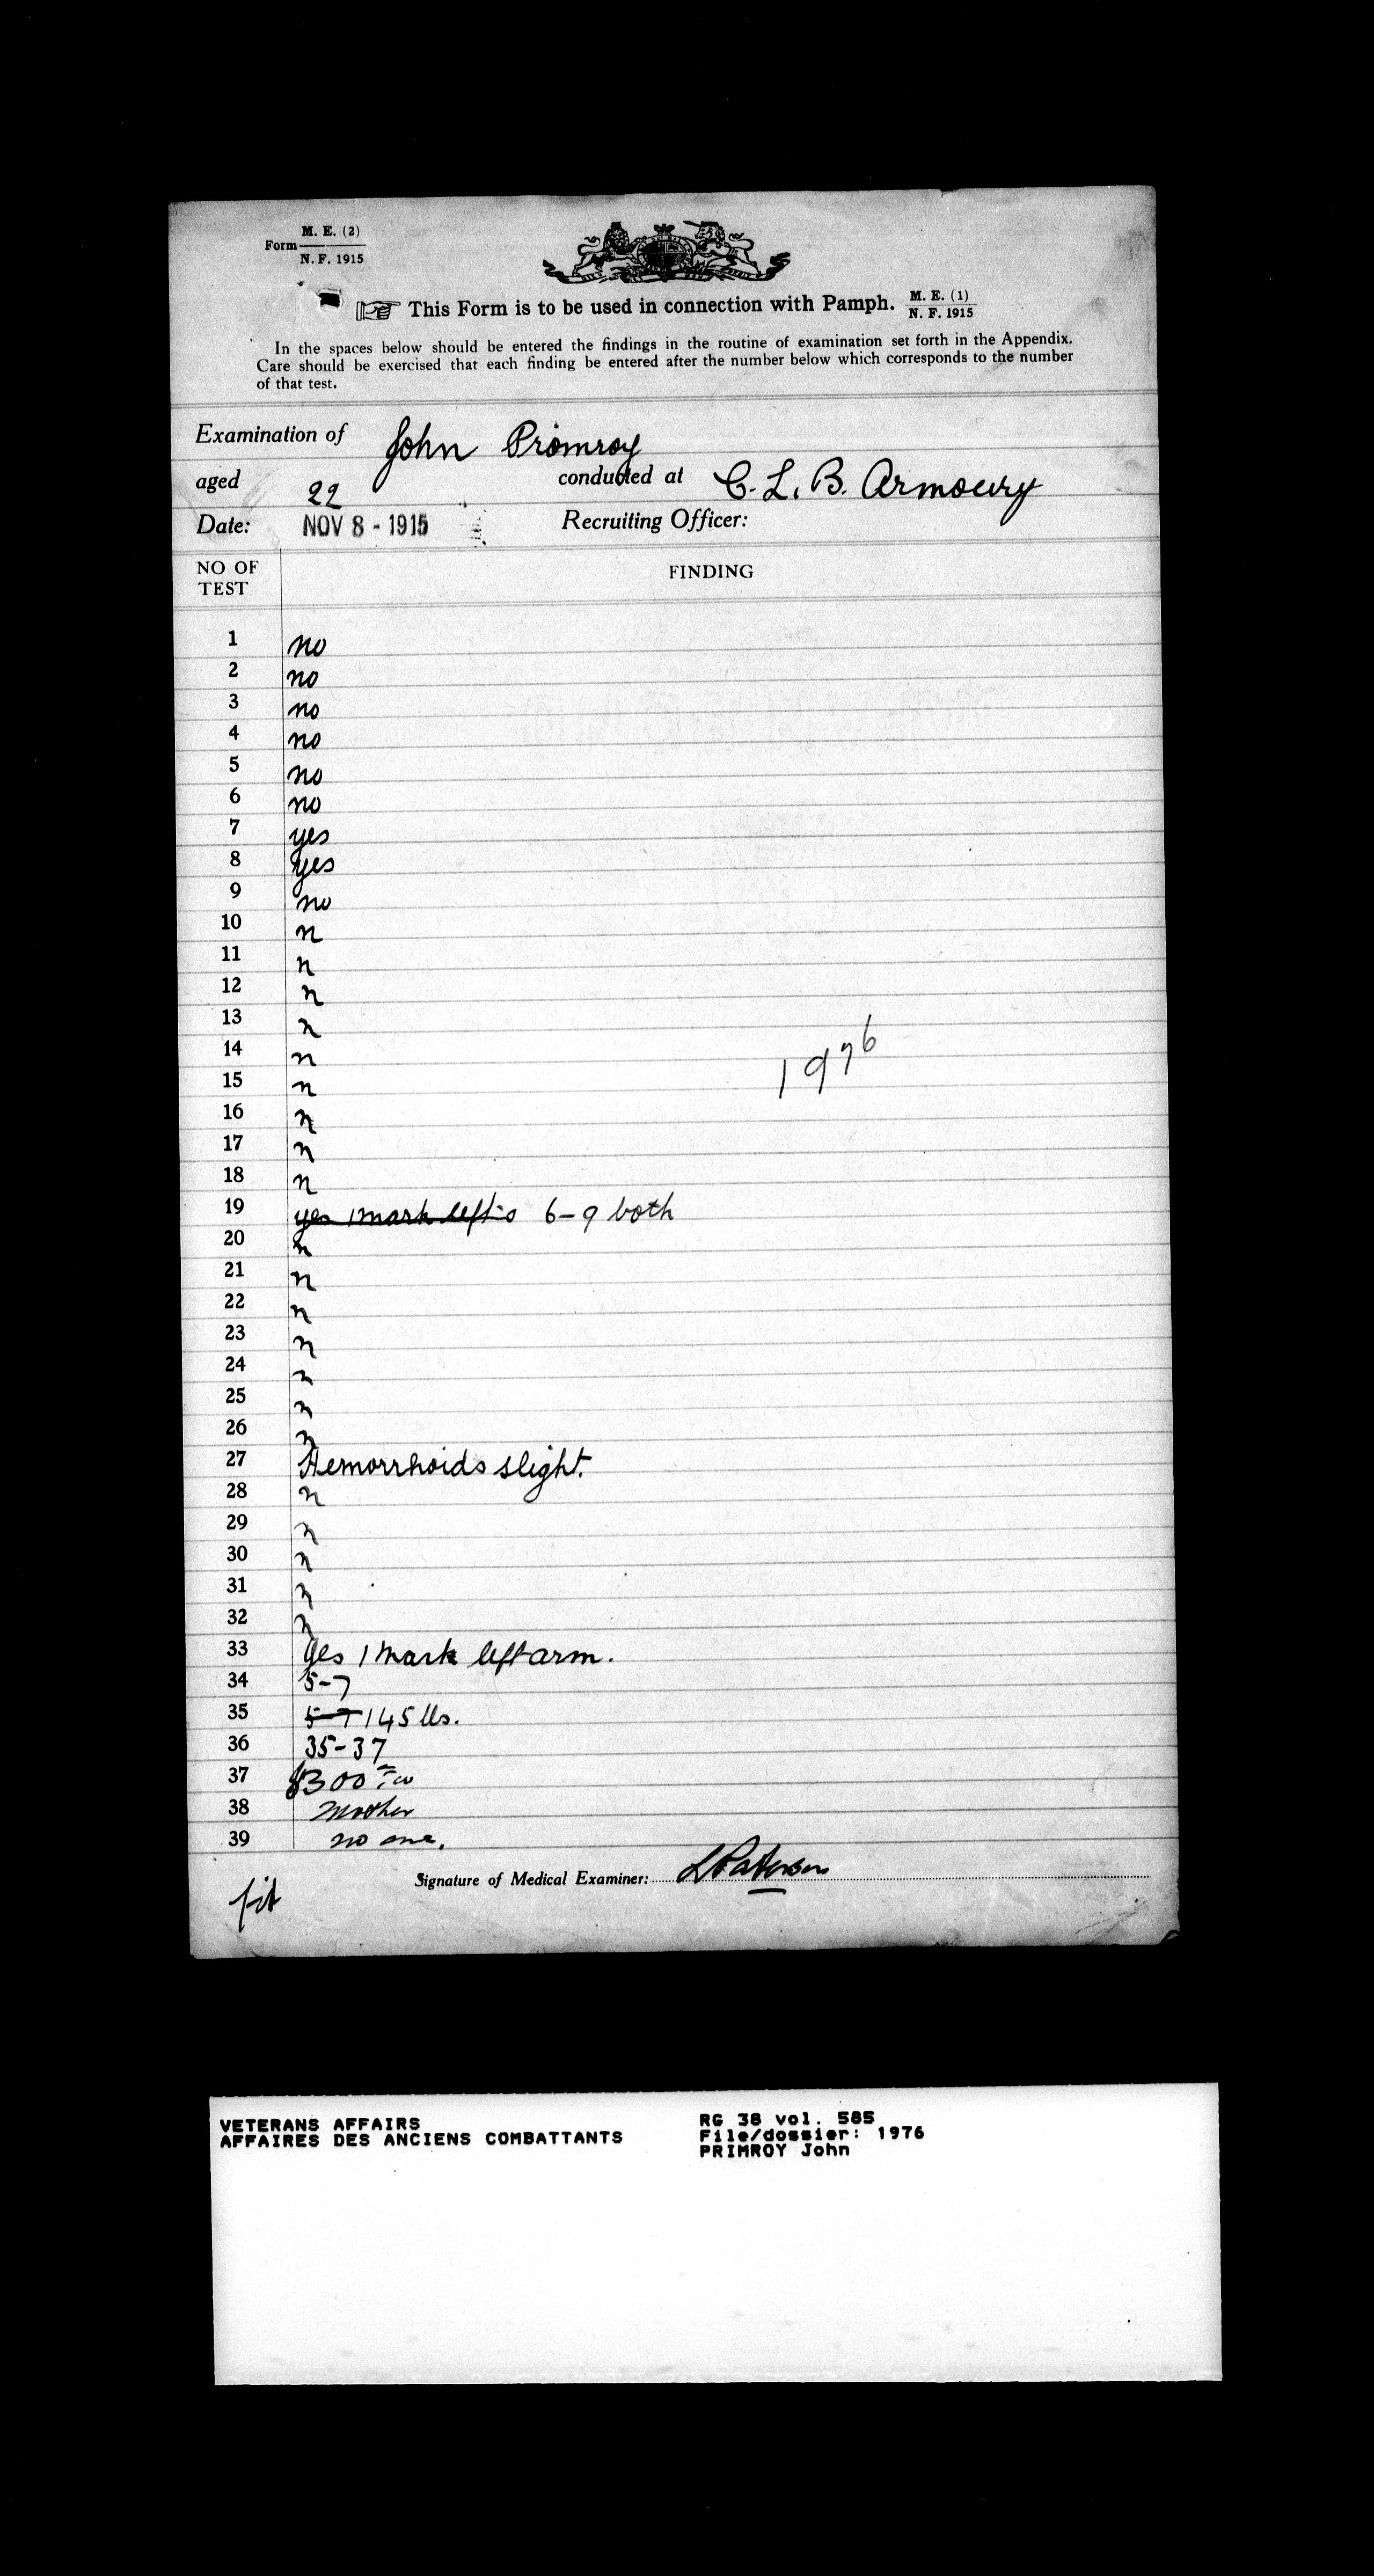 M. E. (2)
Form
N. F. 1915
This Form is to be used in connection with Pamph. M. E. (1)
N. F. 1915
In the spaces below should be entered the findings in the routine of examination set forth in the Appendix.
Care should be exercised that each finding be entered after the number below which corresponds to the number
of that test.
Examination of John Primroy
aged 22 conducted at C. L. B. Armoury
Date: NOV 8 - 1915 Recruiting Officer:
NO OF TEST FINDING
1 no
2 no
3 no
4 no
5 no
6 no
7 yes
8 yes
9 no
10 n
11 n
12 n
13 n
14 n
1976
15 n
16 n
17 n
18 n
19 yes 1 mark left 6-9 both
20 n
21 n
22 n
23 n
24 n
25 n
26 n
27 Hemorrhoids slight.
28 n
29 n
30 n
31 n
32 n
33 Yes 1 mark left arm.
34 5-7
35 5-7 145 lbs.
36 35-37
37 $300
38 Mother
39 no one.
Signature of Medical Examiner: L Paterson
fit
VETERANS AFFAIRS
AFFAIRES DES ANCIENS COMBATTANTS
RG 38 vol. 585
File/dossier: 1976
PRIMROY John